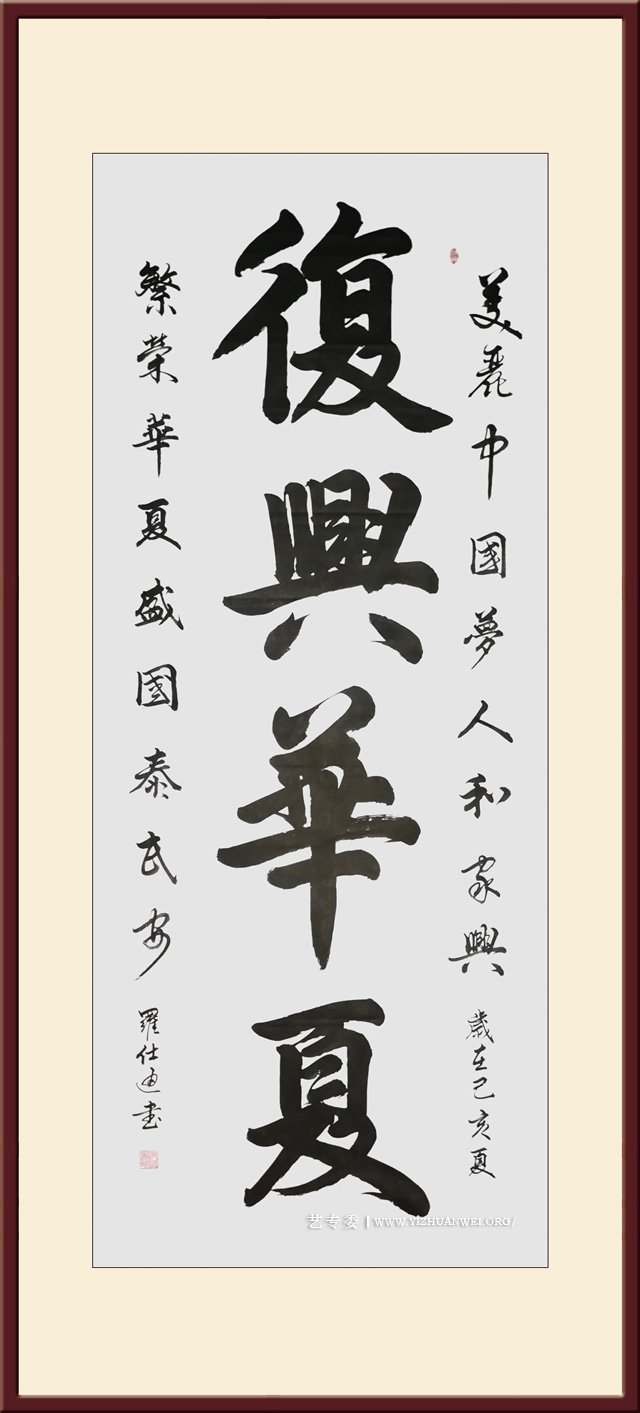 美麗中國夢人和家興
歲在己亥夏
復興華夏
繁荣華夏盛國泰民安
羅仕迪书
艺专委 | WWW.YIZHUANWEI.ORG/